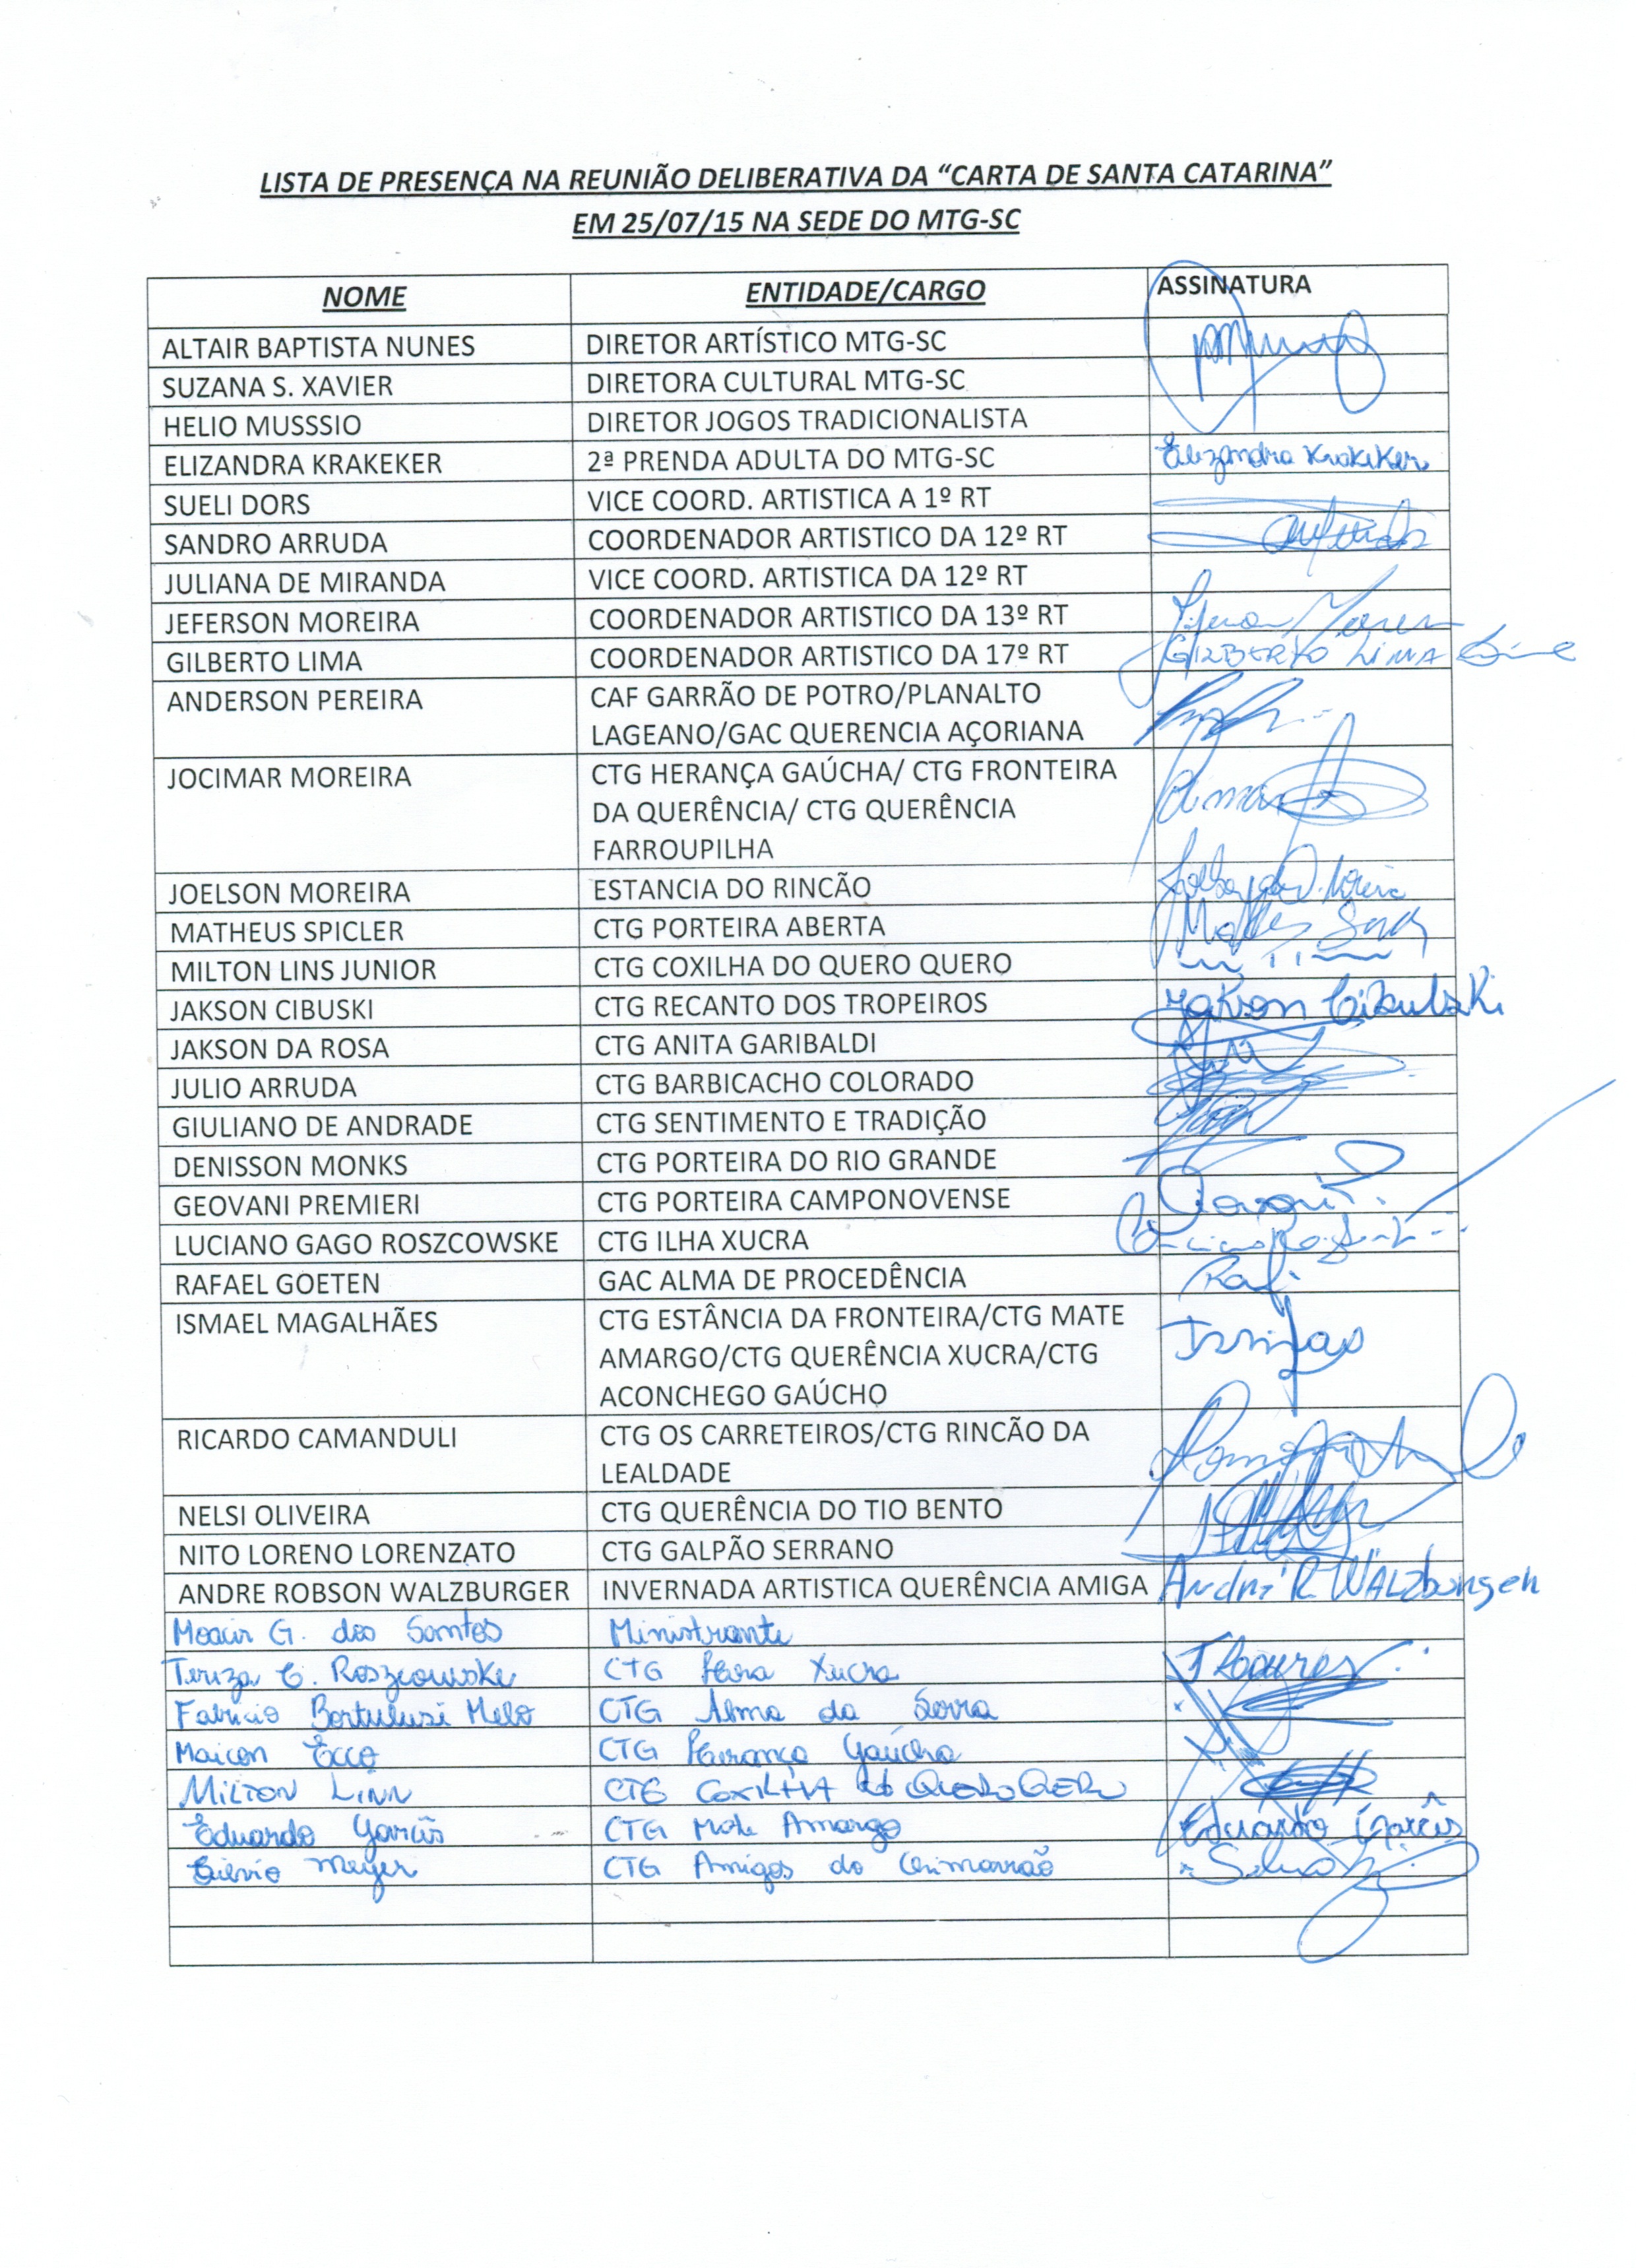 LISTA DE PRESENÇA NA REUNIÃO DELIBERATIVA DA “CARTA DE SANTA CATARINA”
EM 25/07/15 NA SEDE DO MTG-SC
NOME ENTIDADE/CARGO ASSINATURA
ALTAIR BAPTISTA NUNES DIRETOR ARTÍSTICO MTG-SC
SUZANA S. XAVIER DIRETORA CULTURAL MTG-SC
HELIO MUSSSIO DIRETOR JOGOS TRADICIONALISTA
ELIZANDRA KRAKEKER 2ª PRENDA ADULTA DO MTG-SC Elizandra Krakeker
SUELI DORS VICE COORD. ARTISTICA A 1º RT
SANDRO ARRUDA COORDENADOR ARTISTICO DA 12º RT
JULIANA DE MIRANDA VICE COORD. ARTISTICA DA 12º RT
JEFERSON MOREIRA COORDENADOR ARTISTICO DA 13º RT
GILBERTO LIMA COORDENADOR ARTISTICO DA 17º RT GILBERTO LIMA
ANDERSON PEREIRA CAF GARRÃO DE POTRO/PLANALTO
LAGEANO/GAC QUERENCIA AÇORIANA
JOCIMAR MOREIRA CTG HERANÇA GAÚCHA/ CTG FRONTEIRA
DA QUERÊNCIA/ CTG QUERÊNCIA
FARROUPILHA
JOELSON MOREIRA ESTANCIA DO RINCÃO
MATHEUS SPICLER CTG PORTEIRA ABERTA
MILTON LINS JUNIOR CTG COXILHA DO QUERO QUERO
JAKSON CIBUSKI CTG RECANTO DOS TROPEIROS Jakson Cibulski
JAKSON DA ROSA CTG ANITA GARIBALDI
JULIO ARRUDA CTG BARBICACHO COLORADO
GIULIANO DE ANDRADE CTG SENTIMENTO E TRADIÇÃO
DENISSON MONKS CTG PORTEIRA DO RIO GRANDE
GEOVANI PREMIERI CTG PORTEIRA CAMPONOVENSE
LUCIANO GAGO ROSZCOWSKE CTG ILHA XUCRA
RAFAEL GOETEN GAC ALMA DE PROCEDÊNCIA
ISMAEL MAGALHÃES CTG ESTÂNCIA DA FRONTEIRA/CTG MATE
AMARGO/CTG QUERÊNCIA XUCRA/CTG
ACONCHEGO GAÚCHO
RICARDO CAMANDULI CTG OS CARRETEIROS/CTG RINCÃO DA
LEALDADE
NELSI OLIVEIRA CTG QUERÊNCIA DO TIO BENTO
NITO LORENO LORENZATO CTG GALPÃO SERRANO
ANDRE ROBSON WALZBURGER INVERNADA ARTISTICA QUERÊNCIA AMIGA André R WALZburgeR
Moacir G. dos Santos Ministrante
Tereza G. Roszcowske CTG Xucra
Fabricio Bortuluzi Melo CTG Alma da Serra
Maicon Ecco CTG Herança Gaúcha
MILTON LINN CTG COXILHA do QUERO QUERO
Eduardo Garcia CTG Mate Amargo Eduardo Garcia
Silvio Meyer CTG Amigos do Chimarrão